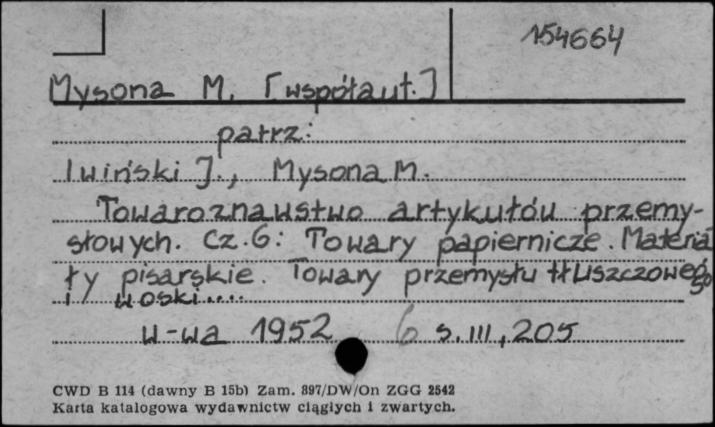 154664
Mysona M. [współaut.]
patrz:
Iwiński J., Mysona M.
Towaroznawstwo artykułów przemy-
słowych. Cz. 6: Towary papiernicze. Materia
ły pisarskie. Towary przemysłu tłuszczowego
i woski....
W-wa 1952 6 s. III, 205
CWD B 114 (dawny B 15b) Zam. 897/DW/On ZGG 2542
Karta katalogowa wydawnictw ciągłych i zwartych.